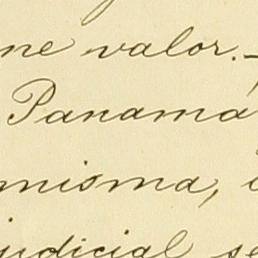 ne valor.-
Panamá
misma,
judicial se